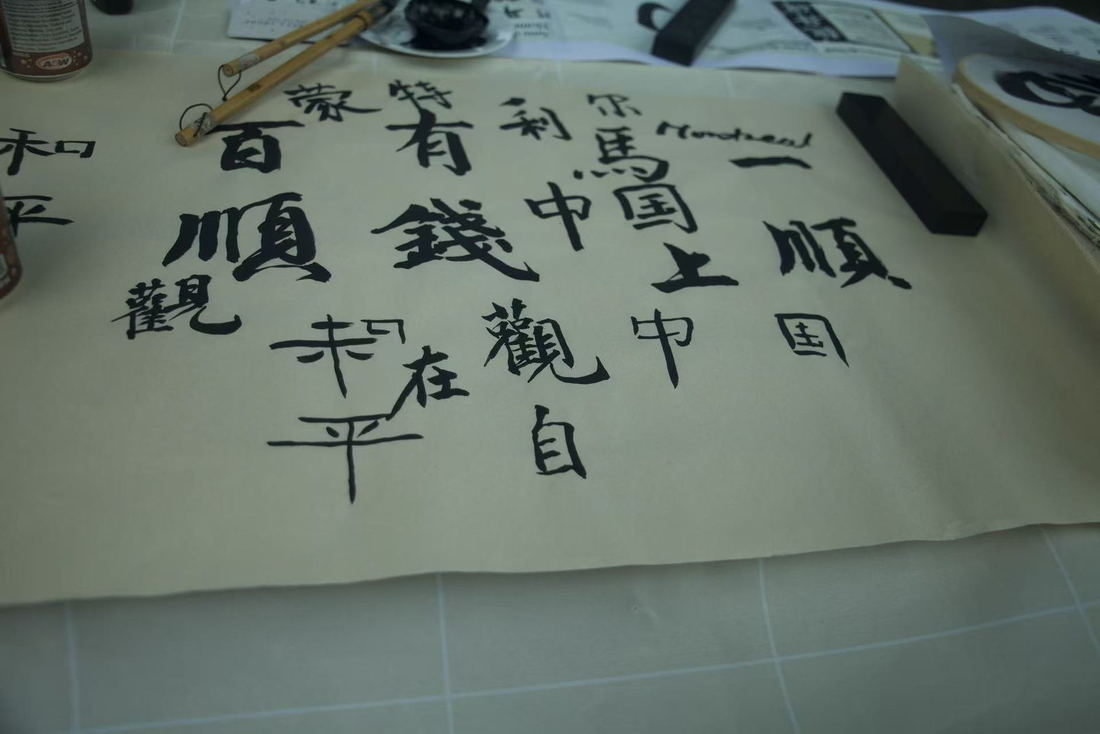 蒙特利尔 Montreal
和 百 有 馬 一
平 順 錢 中国 上 順
觀 和 在 觀 中 国
平 自
A&W